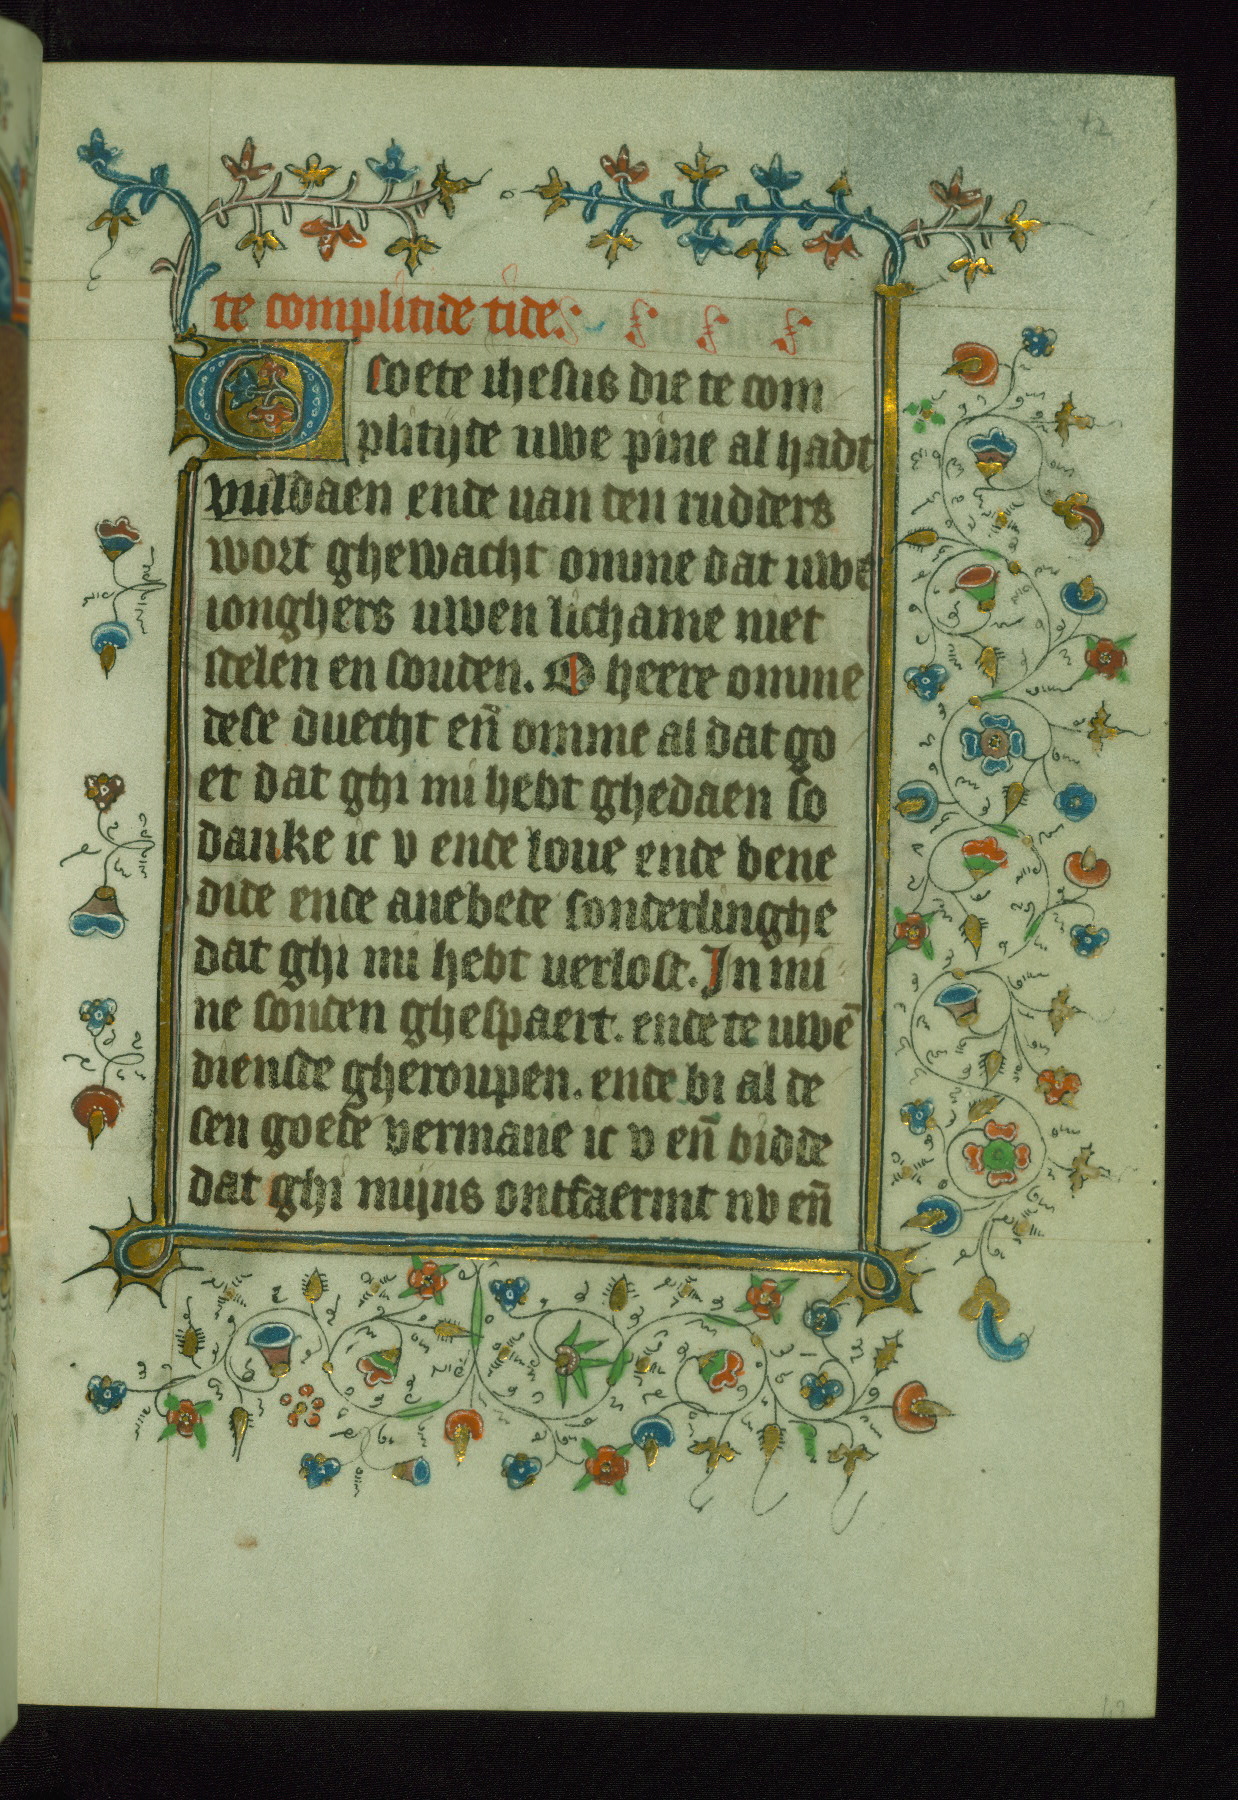 42
te complitide tide.
O soete ihesus die te com
plitijde uwe pine al hadt
vuldaen ende uan den rudders
wort ghewacht omme dat uwe
ionghers uwen lichame niet
stelen en souden. O heere omme
dese duecht en̄ omme al dat go
et dat ghi mi hebt ghedaen so
danke ic v ende loue ende bene
dide ende anebede sonderlinghe
dat ghi mi hebt uerlost. In mi
ne sonden ghespaert. ende te uwē
dienste gheroupen. ende bi al de
sen goede vermane ic v en̄ bidde
dat ghi mijns ontfaermt nv en̄